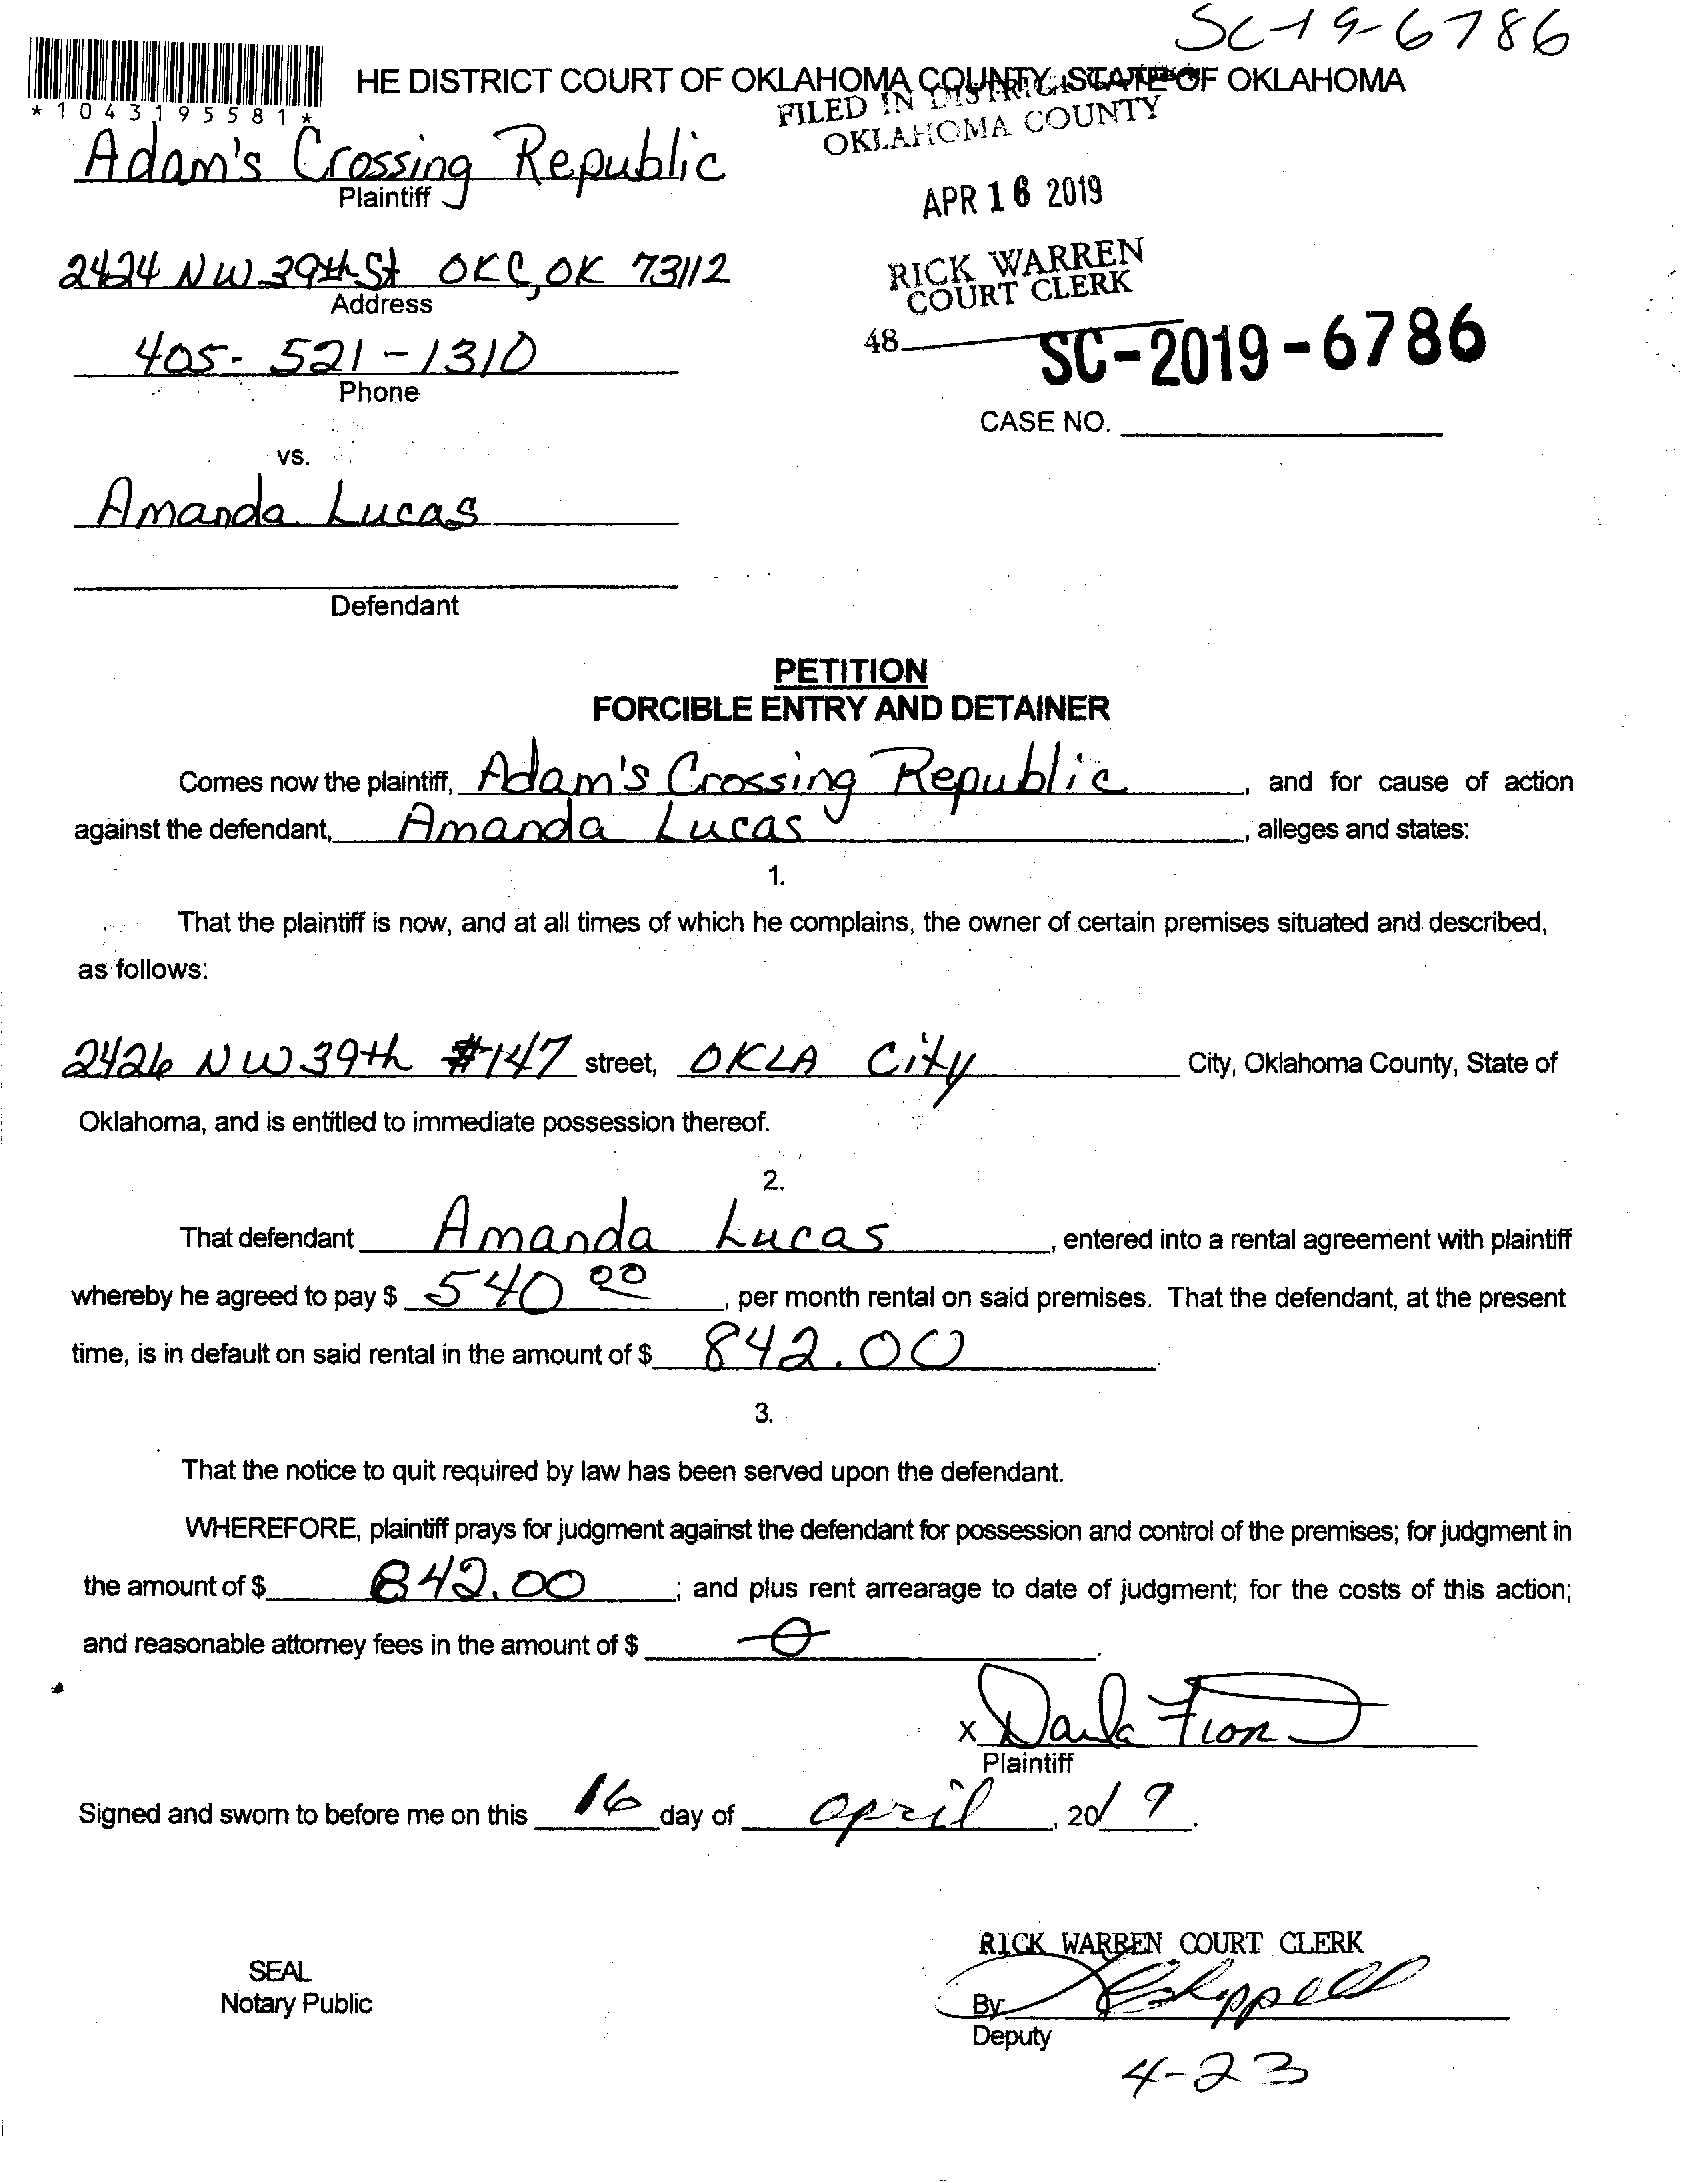 SC-19-6786
HE DISTRICT COURT OF OKLAHOMA COUNTY, STATE OF OKLAHOMA
*1043195581*
FILED IN DISTRICT
OKLAHOMA COUNTY
Adam's Crossing Republic
Plaintiff
APR 16 2019
2424 NW 39th St OKC, OK 73112
Address
RICK WARREN
COURT CLERK
405-521-1310
Phone
48
SC-2019-6786
CASE NO.
vs.
Amanda Lucas
Defendant
PETITION
FORCIBLE ENTRY AND DETAINER
Comes now the plaintiff, Adam's Crossing Republic, and for cause of action
against the defendant, Amanda Lucas, alleges and states:
1.
That the plaintiff is now, and at all times of which he complains, the owner of certain premises situated and described,
as follows:
2426 NW 39th #147 street, OKLA City City, Oklahoma County, State of
Oklahoma, and is entitled to immediate possession thereof.
2.
That defendant Amanda Lucas, entered into a rental agreement with plaintiff
whereby he agreed to pay $ 540 00, per month rental on said premises. That the defendant, at the present
time, is in default on said rental in the amount of $ 842.00.
3.
That the notice to quit required by law has been served upon the defendant.
WHEREFORE, plaintiff prays for judgment against the defendant for possession and control of the premises; for judgment in
the amount of $ 842.00; and plus rent arrearage to date of judgment; for the costs of this action;
and reasonable attorney fees in the amount of $ 0.
X
Plaintiff
Signed and sworn to before me on this 16 day of april, 2019.
RICK WARREN COURT CLERK
SEAL
Notary Public
By
Deputy
4-23